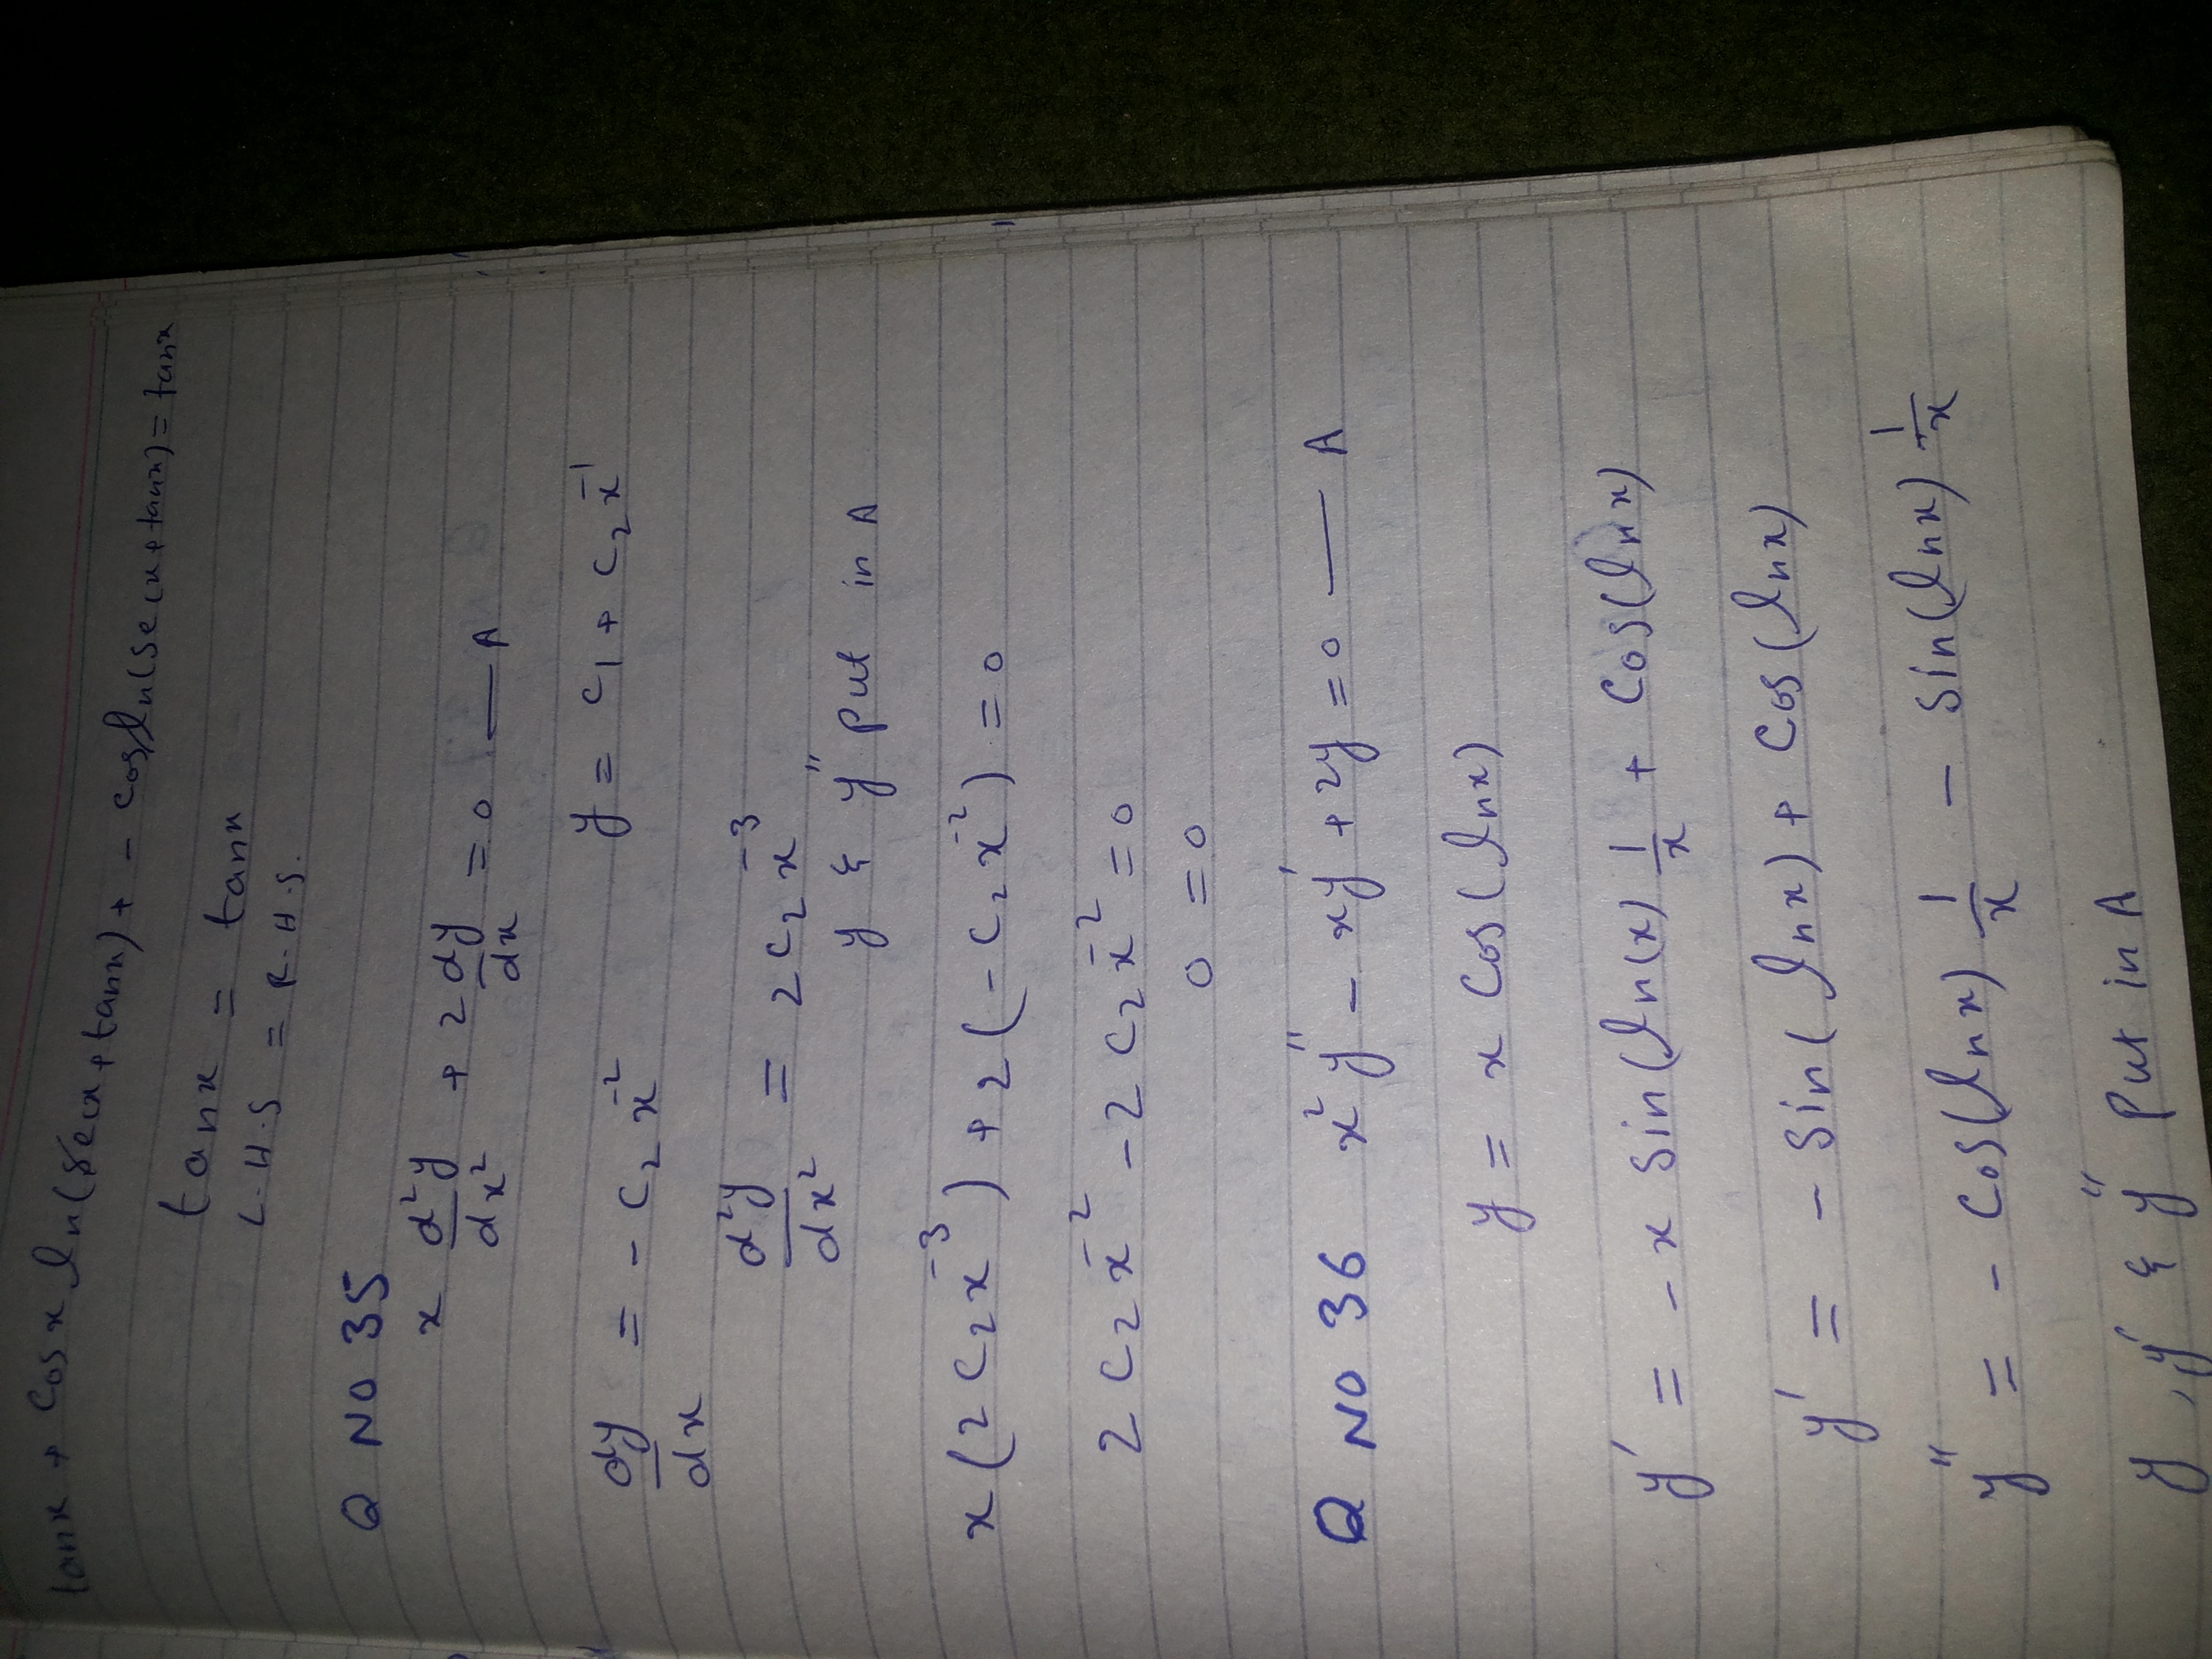 tanx + Cosx ln(secx + tanx) + - cosln(secx + tanx) = tanx
tanx = tanx
L.H.S = R.H.S.
Q NO 35
x d²y/dx² + 2 dy/dx = 0 — A
y = c₁ + c₂x⁻¹
dy/dx = - c₂ x⁻²
d²y/dx² = 2c₂x⁻³
y & y'' put in A
x(2c₂x⁻³) + 2(-c₂x⁻²) = 0
2c₂x⁻² - 2c₂x⁻² = 0
0 = 0
Q NO 36 x²y'' - xy' + 2y = 0 — A
y = x Cos(lnx)
y' = -x sin(ln(x) 1/x + Cos(lnx)
y' = - sin(lnx) + Cos(lnx)
y'' = - Cos(lnx) 1/x - sin(lnx) 1/x
y, y' & y'' put in A